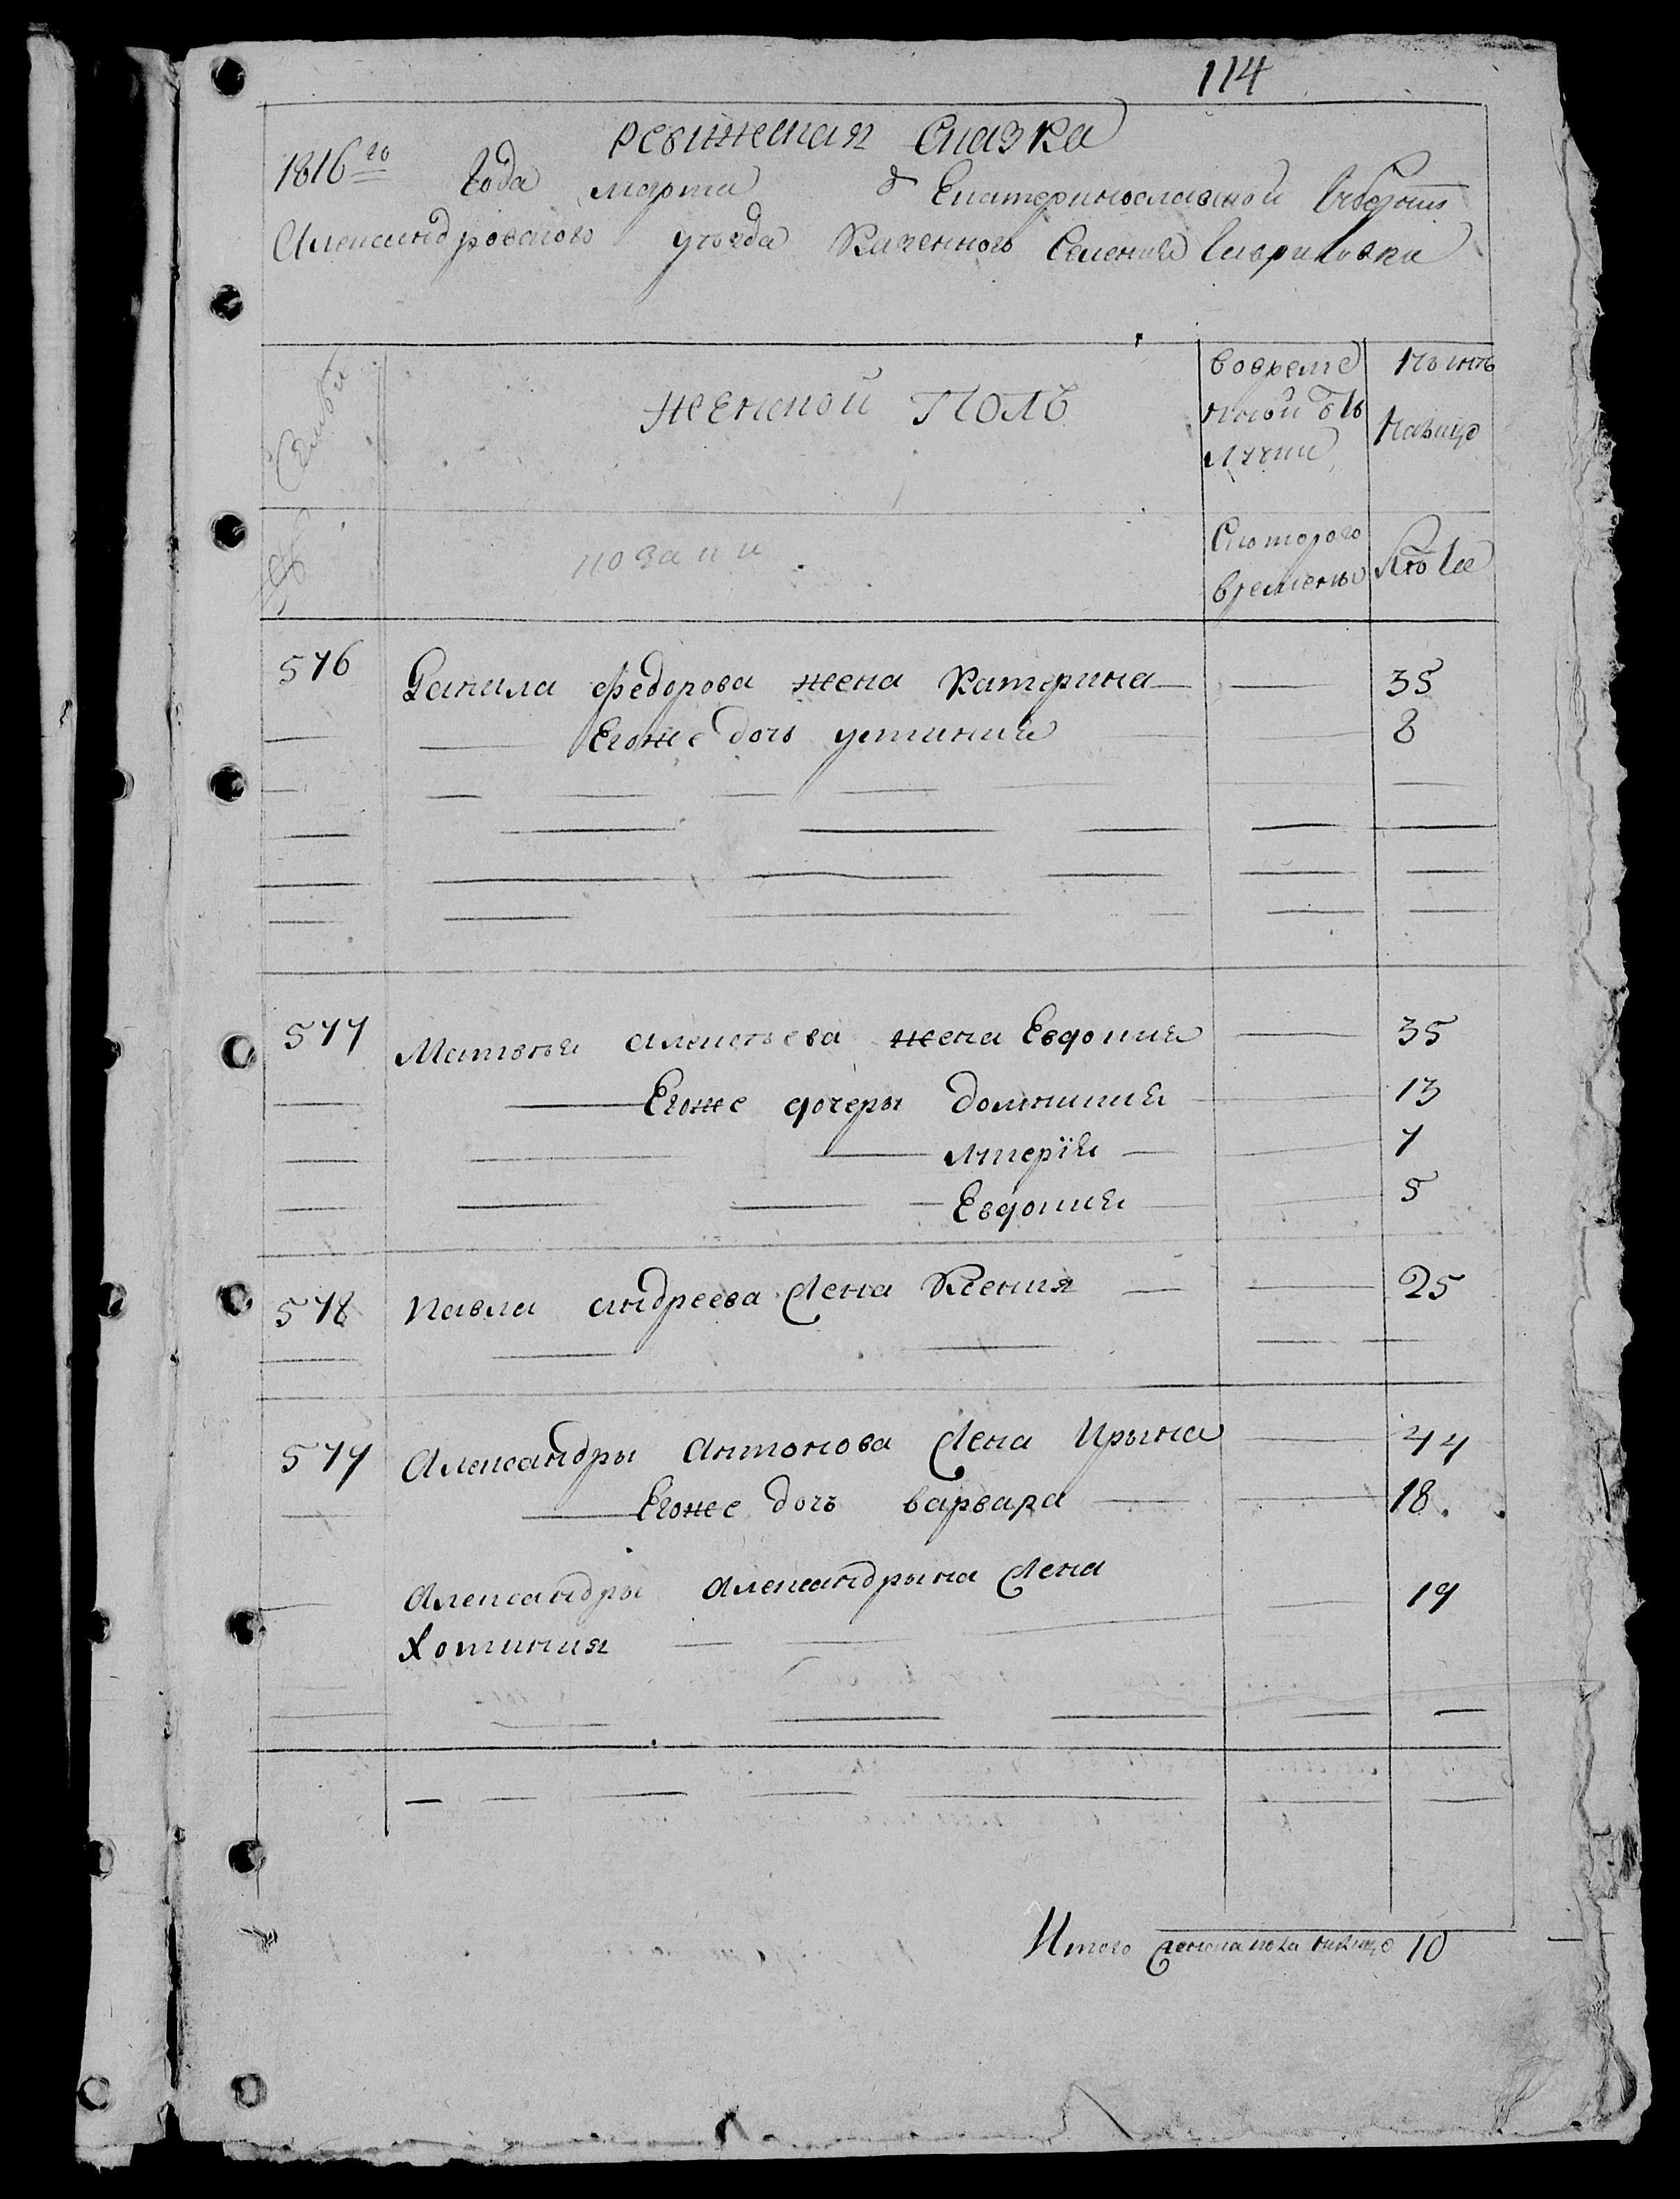 114
Ревижская Сказка
1816го Года марта д Екатеринославской Губернии
Александровского уезда Казенного Селения Гавриловки
Семьи
женской Полъ
вовреме
нной отъ
лучки
Ныне
Налицо
Скоторого
времены
Лета
576 Данила Федорова жена Катерина 35
Егоже дочь устиния 8
577 Матвея алексеева жена Евдокия 35
Егоже дочеры Домникия 13
Лкерїя 7
Евдокия 5
578 Павла андреева жена Ксения 25
579 Александры антонова жена Ирына 44
Егоже дочь варвара 18
Александры Александрына жена 19
Хотиния
Итого женска пола налицо 10